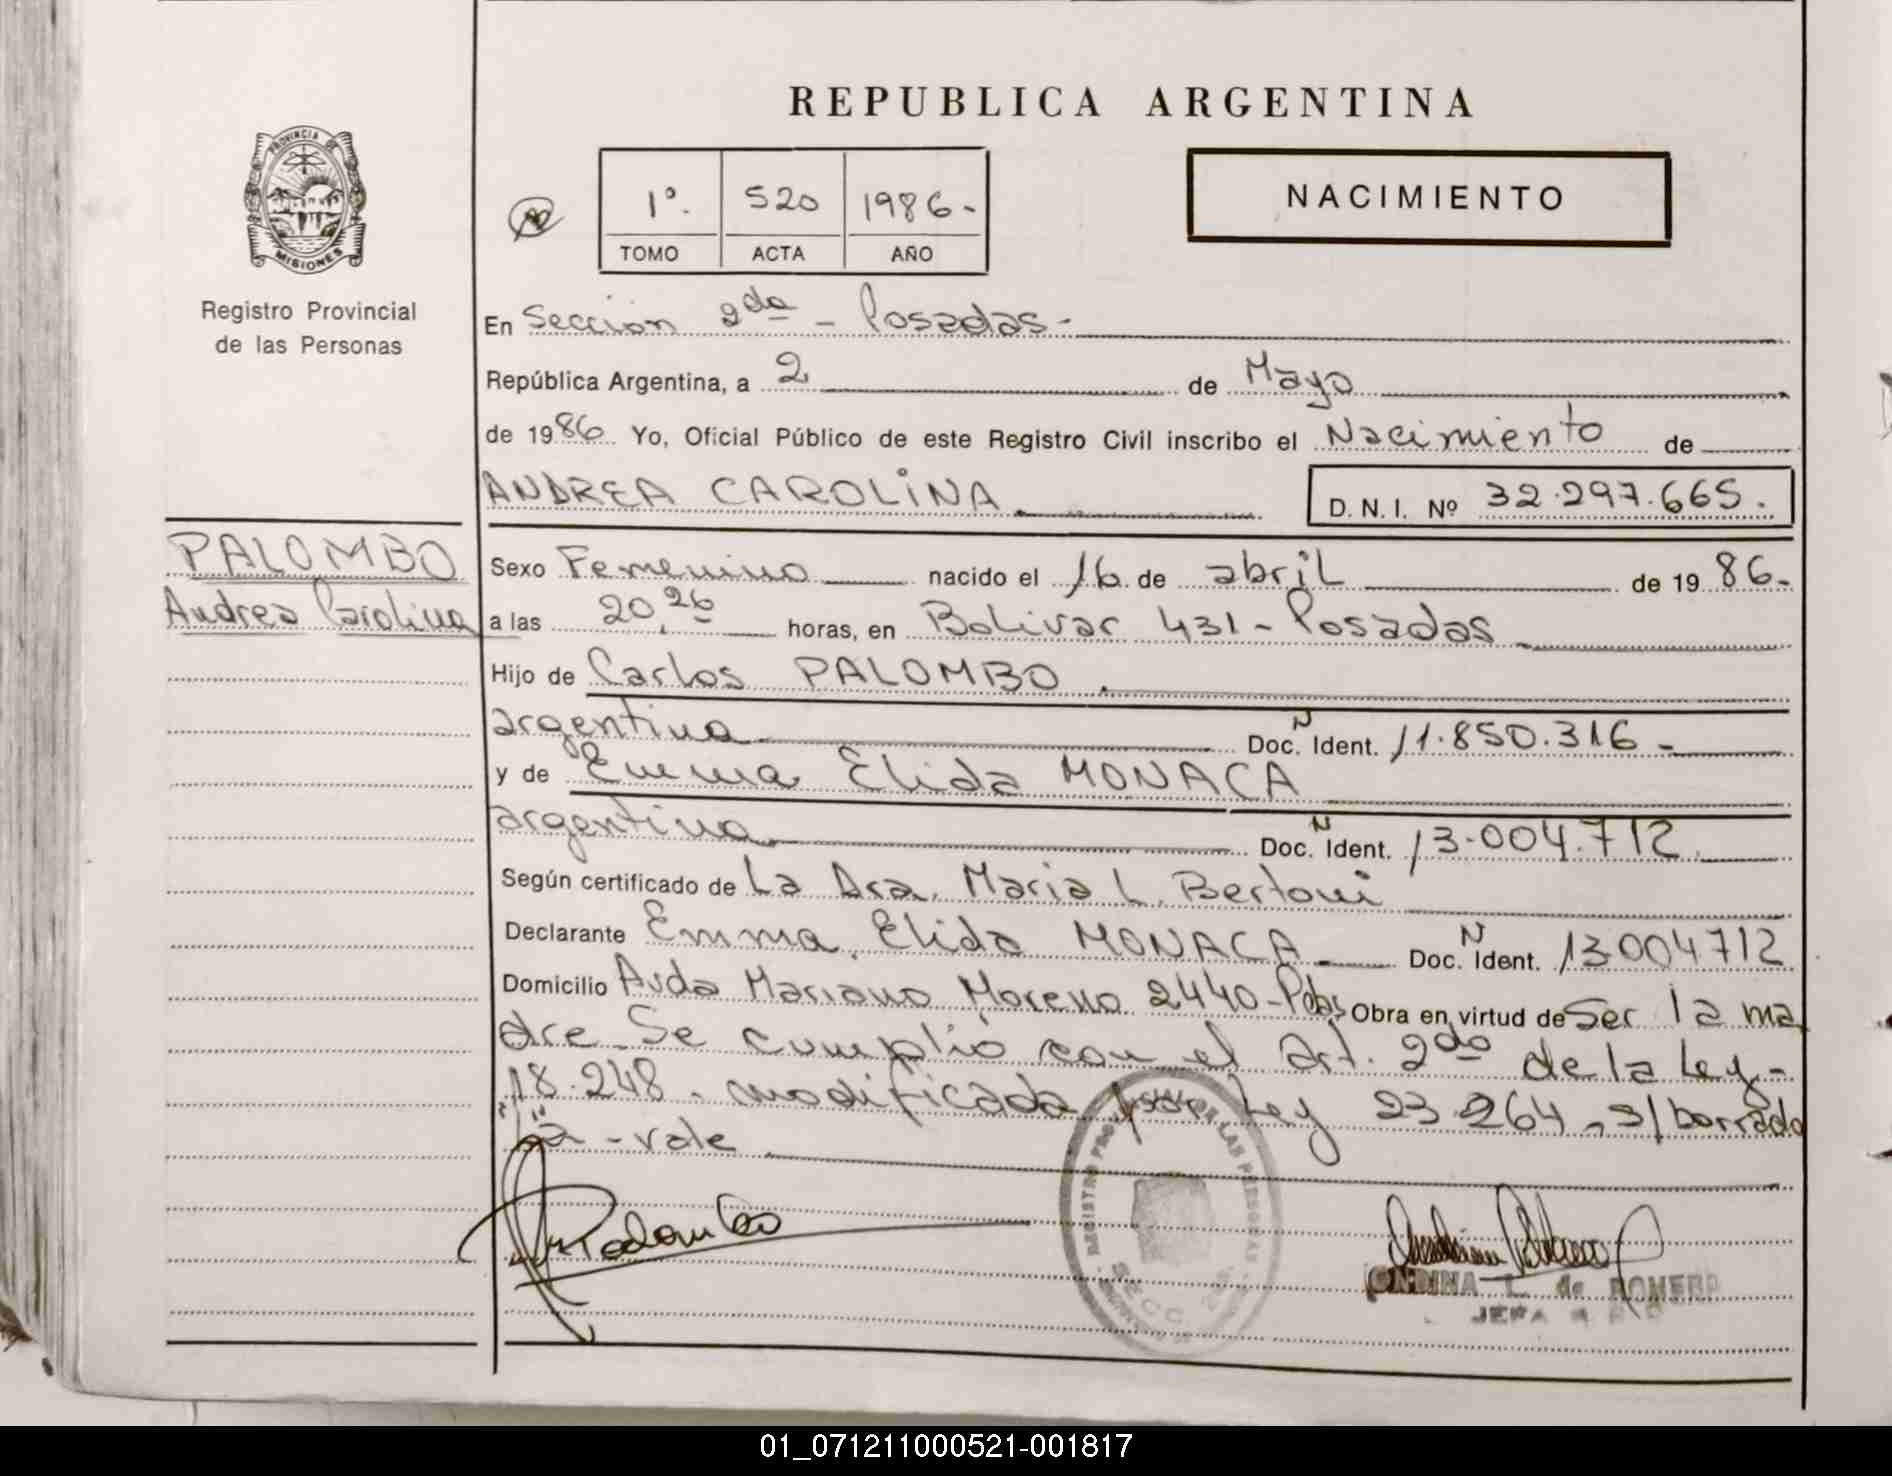 REPUBLICA ARGENTINA
PROVINCIA DE
MISIONES
Registro Provincial
de las Personas
1º. 520 1986-
TOMO ACTA AÑO
NACIMIENTO
En Sección 2da - Posadas-
República Argentina, a 2 de Mayo
de 1986 Yo, Oficial Público de este Registro Civil inscribo el Nacimiento de
ANDREA CAROLINA D. N. I. Nº 32.297.665.
PALOMBO
Andrea Carolina
Sexo Femenino nacido el 16 de abril de 1986-
a las 20,26 horas, en Bolivar 431 - Posadas
Hijo de Carlos PALOMBO
argentina Doc. N Ident. 11.850.316-
y de Emma Elida MONACA
argentina Doc. N Ident. 13.004.712
Según certificado de La Dra. Maria L. Bertoni
Declarante Emma Elida MONACA Doc. N Ident. 13004712
Domicilio Avda Mariano Moreno 2440-Pdas Obra en virtud de Ser la ma
dre - Se cumplió con el Art. 2do de la Ley-
18.248. modificada por Ley 23264 - s/borrado
"a" - vale
Palombo
REGISTRO DE LAS PERSONAS
SECC. 2a
ONDINA L. de ROMERO
JEFA
01_071211000521-001817